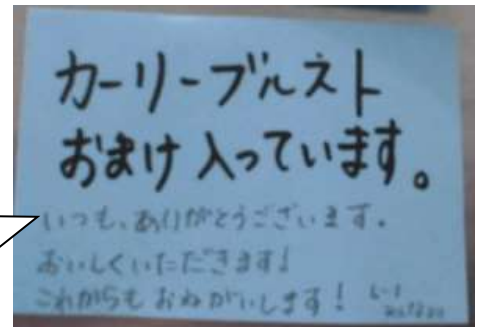 カーリーブルスト
おまけ入っています。
いつも、ありがとうございます。
おいしくいただきます!
これからもおねがいします!